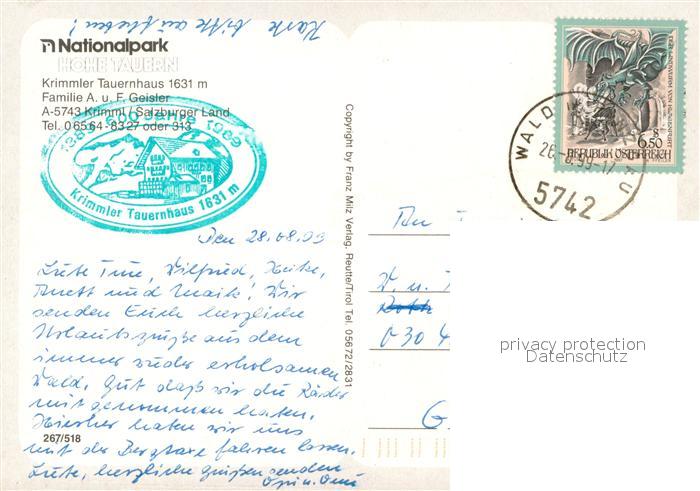 Karte bitte aufheben!
Nationalpark
HOHE TAUERN
Krimmler Tauernhaus 1631 m
Familie A. u. F. Geisler
A-5743 Krimml / Salzburger Land
Tel. 0 65 64 - 83 27 oder 313
600 Jahre 1989
Krimmler Tauernhaus 1631 m
Den 28.08.
Liebe Wilfried,
Anett und Maik! Wir
senden Euch herzliche
Urlaubsgrüße aus dem
immer wieder erholsamen
Wald. Gut daß wir die Räder
mit genommen hatten.
Hierher haben wir uns
mit der Bergtaxe fahren lassen.
Liebe, herzliche Grüße senden
Opi u. Omi
267/518
Copyright by Franz Milz Verlag, Reutte/Tirol Tel. 05672/2831
S
6.50
REPUBLIK ÖSTERREICH
WALD
5742
An
W. u.
030 4
G
privacy protection
Datenschutz